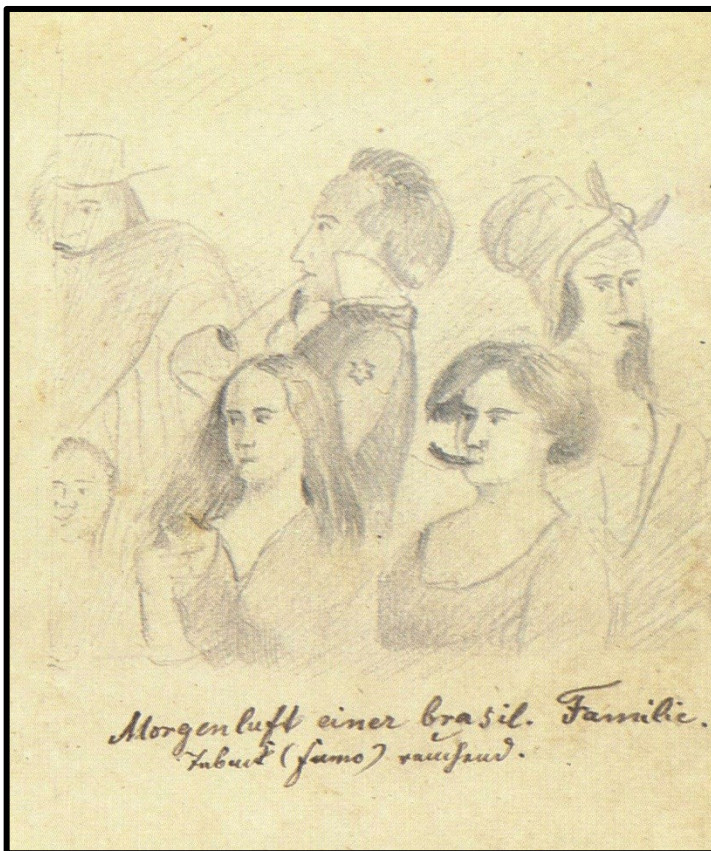 Morgenluft einer brasil. Familie.
Taback (fumo) rauchend.